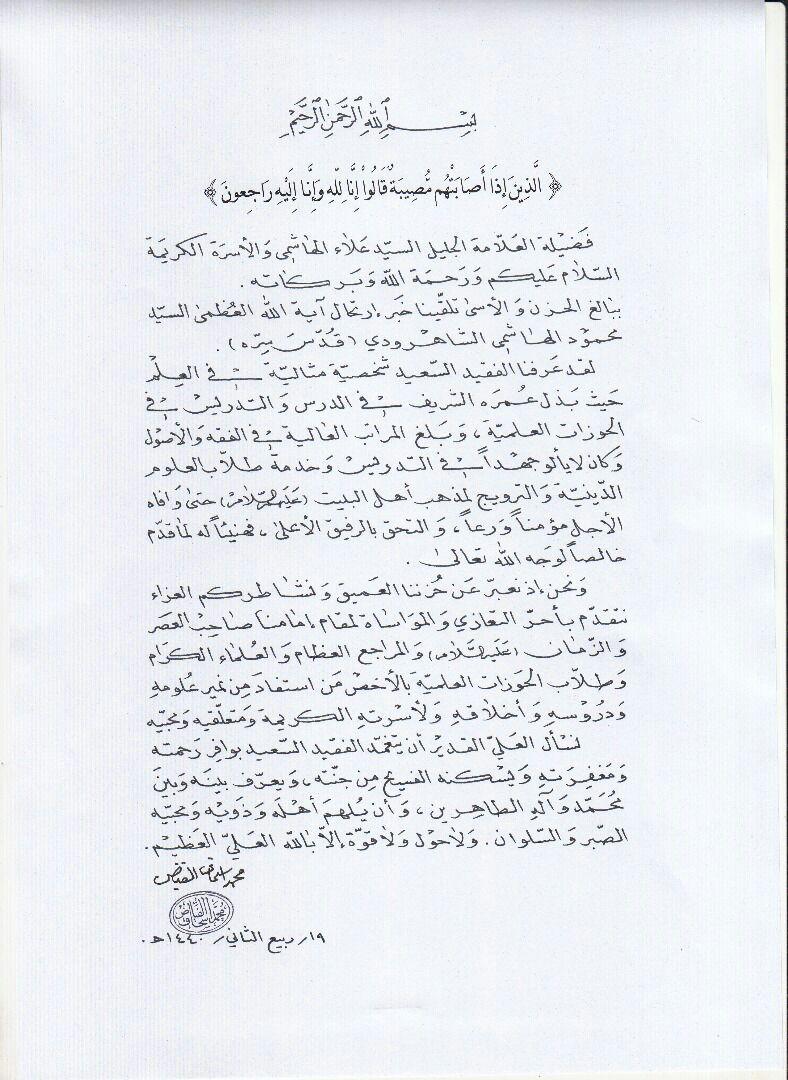 بِسْمِ اللهِ الرَّحْمَنِ الرَّحِيمِ
﴿ الَّذِينَ إِذَا أَصَابَتْهُم مُّصِيبَةٌ قَالُوا إِنَّا لِلّهِ وَإِنَّا إِلَيْهِ رَاجِعونَ ﴾
فَضيلة العَلّامة الجليل السيّد عَلاء الهاشمي وَالأسرَة الكريمَة
السّلام عَليكم وَرَحمَة الله وَبَركاته .
ببالغ الحزن وَالأسى تلقّينا خَبر إرتحال آية الله العُظمى السيّد
محمود الهاشمي الشاهرودي (قُدّسَ سِرّه) .
لقد عَرفنا الفقيد السّعيد شخصيّة مثاليّة في العِلْم
حَيث بَذل عُمرَه الشريف في الدرس وَالتدريس في
الحوزات العلميّة ، وَبَلغ المراتب العالية في الفقه وَالأصول
وَكان لا يألو جهداً في التدريس وَخدمة طلّاب العلوم
الدّينيّة وَالترويج لمذهب أهل البيت (عَلَيهم السّلام) حتى وَافاه
الأجل مؤمناً وَرعاً ، وَالتحق بالرفيق الأعلى ، فهنيئاً له لما قدّم
خالصاً لوَجه الله تعالى .
وَنحن إذ نعبّر عَن حُزننا العَميق وَنشاطركم العزاء
نتقدّم بأحرّ التعازي وَالموَاساة لمقام إمامنا صَاحِب العَصر
وَالزّمان (عَليه السّلام) وَالمراجع العظام وَالعُلماء الكرَام
وَطلّاب الحَوزات العلميّة بالأخص مَن استفاد مِن نمير عُلومهِ
وَدُروسهِ وَأخلاقهِ وَلأسرتهِ الكريمة وَمتعلّقيه وَمحبّيه
نسأل العَليّ القدير أن يتغمّد الفقيد السّعيد بوافر رَحمته
وَمَغفِرَتهِ وَيسْكنه الفسيح مِن جنّته ، وَيعرّف بينَه وَبينَ
مُحَمّد وَآلهِ الطاهرين ، وَأن يُلهمَ أهلَه وَذَويْه وَمحبّيه
الصّبر وَالسّلوان . وَلاحَول وَلاقوّة إلاّ بالله العَليّ العَظيْم .
محمد اسحاق الفياض
محمد إسحاق الفياض
١٩/ ربيع الثاني/ ١٤٤٠هـ .